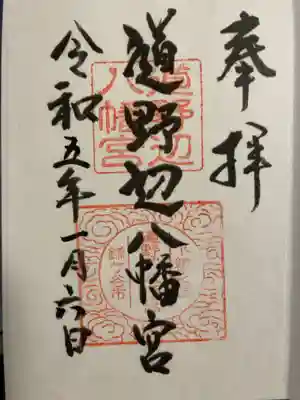 奉拝
道野辺八幡宮
令和五年一月六日
道野辺
八幡宮